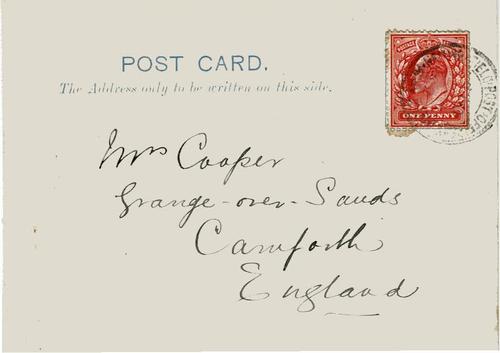 POST CARD.
The Address only to be written on this side.
POSTAGE
ONE PENNY
FIELD POST OFF
Mrs Cooper
Grange-over-Sands
Carnforth
England